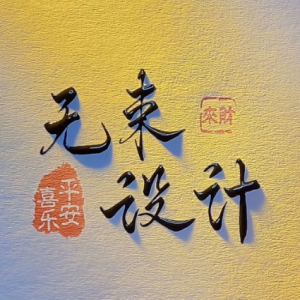 无束
设计
财来
平安
喜乐